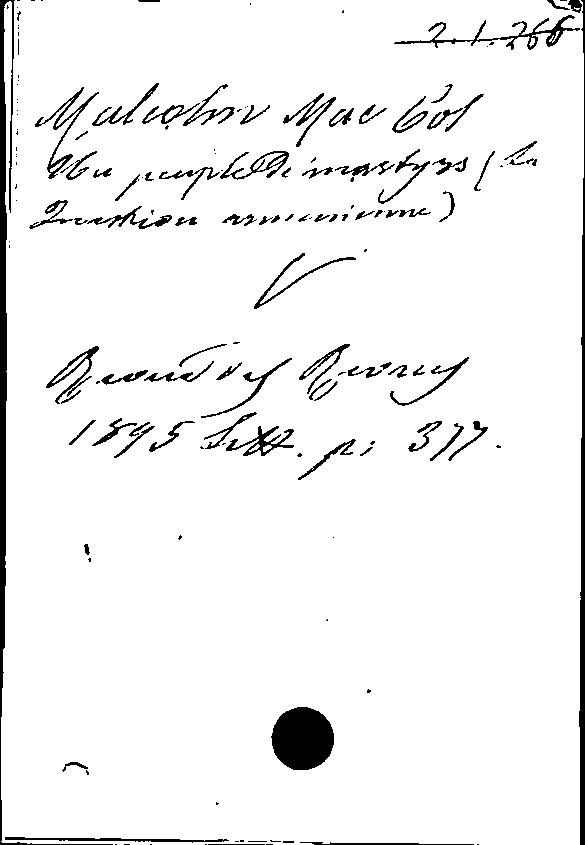 2.1.266
Malcolm Mac Col
Un peuple de martyrs (La
Question arménienne)
Revue des Revues
1895 p: 377.